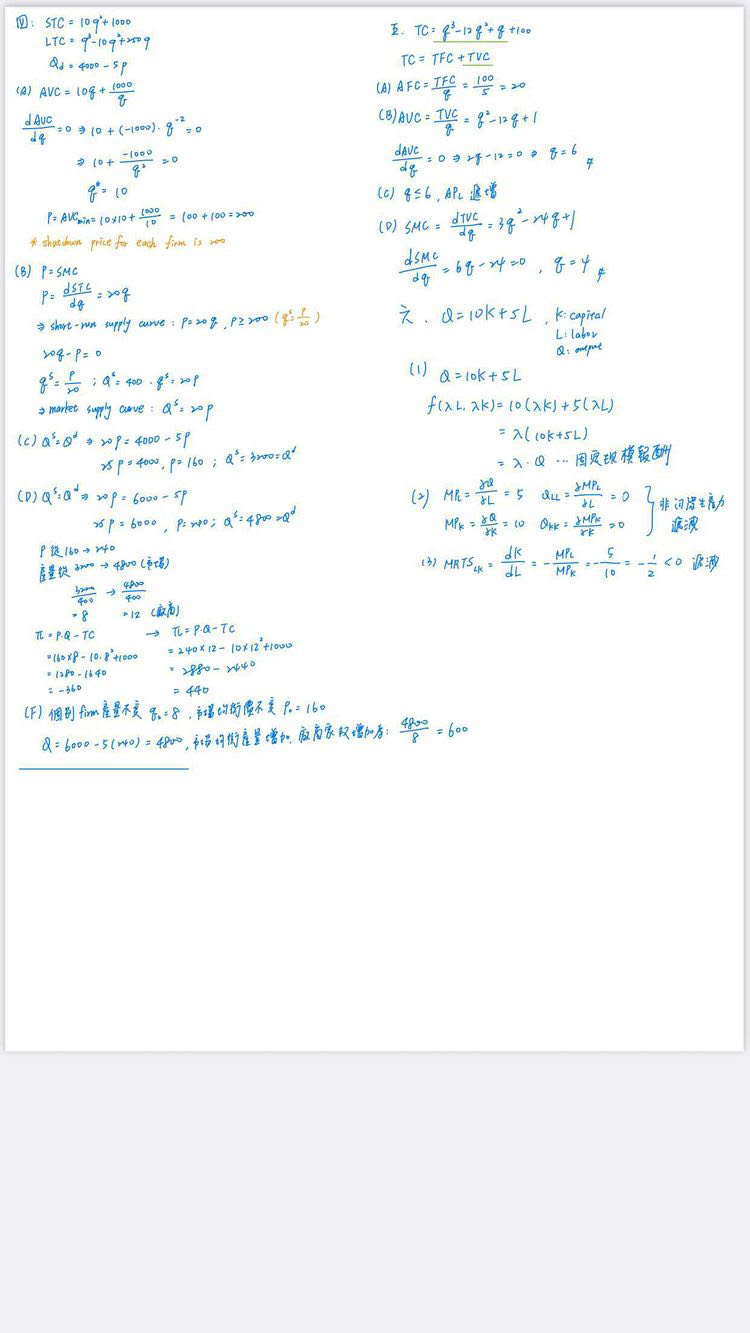 四: STC = 10q²+1000
LTC = q³-10q²+250q
Qd = 4000-5P
(A) AVC = 10q + 1000/q
dAVC/dq = 0 ⇒ 10 + (-1000)·q⁻² = 0
⇒ 10 + -1000/q² = 0
q* = 10
P = AVCmin = 10×10 + 1000/10 = 100+100 = 200
* shutdown price for each firm is 200
(B) P = SMC
P = dSTC/dq = 20q
⇒ short-run supply curve : P = 20q , P ≥ 200 (qˢ = P/20)
20q - P = 0
qˢ = P/20 ; Qˢ = 400 · qˢ = 20P
⇒ market supply curve : Qˢ = 20P
(C) Qˢ = Qᵈ ⇒ 20P = 4000 - 5P
25P = 4000, P = 160 ; Qˢ = 3200 = Qᵈ
(D) Qˢ = Qᵈ ⇒ 20P = 6000 - 5P
25P = 6000 , P = 240 ; Qˢ = 4800 = Qᵈ
P 從 160 → 240
產量從 3200 → 4800 (市場)
3200/400 → 4800/400
= 8 = 12 (廠商)
π = P·Q - TC → π = P·Q - TC
= 160×8 - 10·8²+1000 = 240×12 - 10×12²+1000
= 1280 - 1640 = 2880 - 2440
= -360 = 440
(F) 個別 firm 產量不變 q₀ = 8 , 市場均衡價不變 P₀ = 160
Q = 6000 - 5(240) = 4800, 市場均衡產量增加, 廠商家數增加為: 4800/8 = 600
五. TC = q³-12q²+q+100
TC = TFC + TVC
(A) AFC = TFC/q = 100/5 = 20
(B) AVC = TVC/q = q²-12q+1
dAVC/dq = 0 ⇒ 2q-12 = 0 ⇒ q = 6
(C) q ≤ 6 , APL 遞增
(D) SMC = dTVC/dq = 3q²-24q+1
dSMC/dq = 6q-24 = 0 , q = 4
六. Q = 10K+5L , K: capital
L: labor
Q: output
(1) Q = 10K+5L
f(λL, λK) = 10(λK)+5(λL)
= λ(10K+5L)
= λ·Q ... 固定規模報酬
(2) MPL = ∂Q/∂L = 5 QLL = ∂MPL/∂L = 0
MPK = ∂Q/∂K = 10 QKK = ∂MPK/∂K = 0
非邊際生產力
遞減
(3) MRTSLK = dK/dL = - MPL/MPK = - 5/10 = - 1/2 < 0 遞減